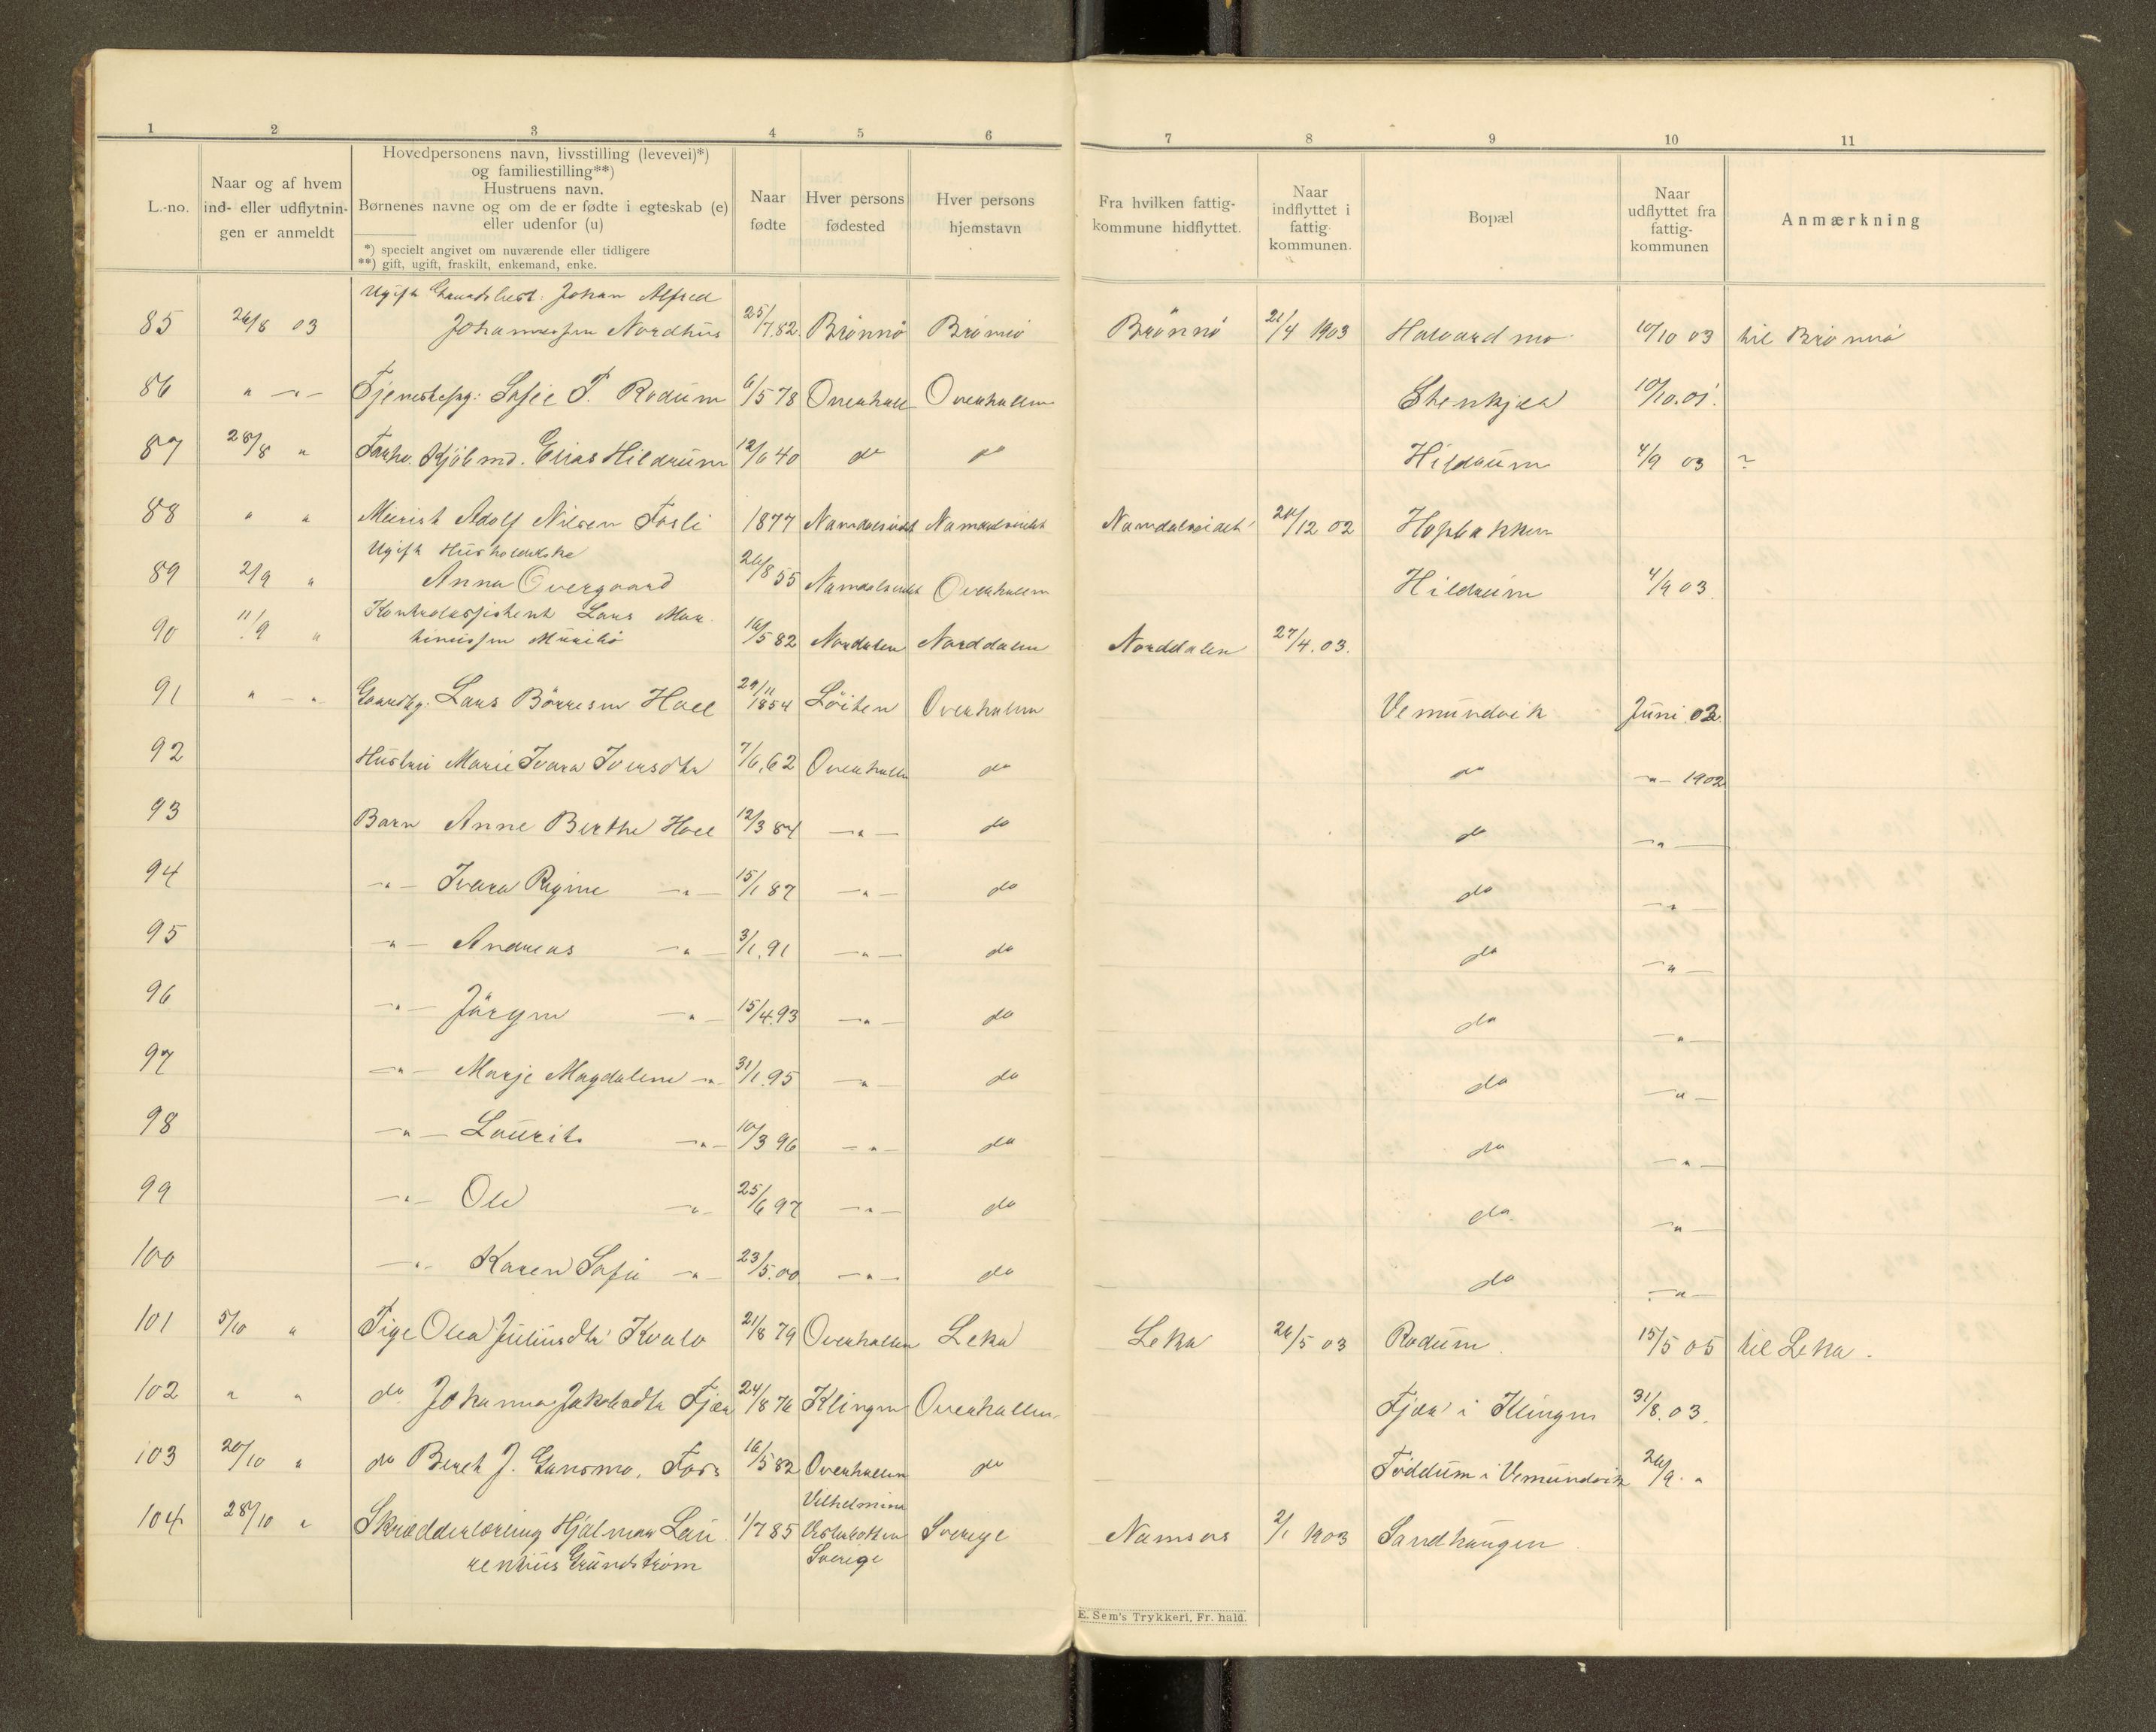 1 2 3 4 5 6 7 8 9 10 11
L.-no.
Naar og af hvem
ind- eller udflytnin-
gen er anmeldt
Hovedpersonens navn, livsstilling (levevei)*)
og familiestilling**)
Hustruens navn.
Børnenes navne og om de er fødte i egteskab (e)
eller udenfor (u)
*) specielt angivet om nuværende eller tidligere
**) gift, ugift, fraskilt, enkemand, enke.
Naar
fødte
Hver persons
fødested
Hver persons
hjemstavn
Fra hvilken fattig-
kommune hidflyttet.
Naar
indflyttet i
fattig-
kommunen.
Bopæl
Naar
udflyttet fra
fattig-
kommunen
Anmærkning
Ugift Johan Alfred
85 26/8 03 Johannessen Nordhus 25/7 82 Brønnø Brønnø Brønnø 21/4 1903 Halvardmo 10/10 03 til Brønnø
86 " -"- Tjenestepg: Sofie P. Rodum 6/5 78 Overhall Overhallen Stenkjær 10/10.01.
87 28/8 " Elias Hildrum 12/6 40 do do Hildrum 4/9 03 ?
88 " " Meierist Adolf Nilsen Fosli 1877 Namdalseidet Namdalseidet Namdalseidet 20/12 02 Hopbakken
Ugift Husholderske
89 2/9 " Anna Overgaard 26/8 55 Namdalseidet Overhallen Hildrum 4/9 03.
Kontrolassistent Lars Mar-
90 11/9 " tinussen 16/5 82 Nordalen Norddalen Norddalen 27/4.03.
91 " - " Gaardbg. Lars Børresen Hall 29/11 1854 Løiten Overhallen Vemundvik Juni 02.
92 Hustru Marie Ivara Iversdtr 7/6.62 Overhallen do do -"- 1902
93 Barn Anne Berthe Hall 12/3 84 -"- do do -"-
94 -"- Ivara Regine -"- 15/1 87 -"- do do -"-
95 -"- Andreas -"- 3/1.91 -"- do do -"-
96 -"- Jørgen -"- 15/4.93 -"- do do -"-
97 -"- Marje Magdalene -"- 31/1.95 -"- do do -"-
98 -"- Laurits -"- 10/3 96 -"- do do -"-
99 -"- Ole -"- 25/6 97 -"- do do. -"-
100 -"- Karen Sofie -"- 23/5.00 -"- do do -"-
101 5/10 " Pige Olea Juliusdtr Kvalo 21/8 79 Overhallen Leka Leka 26/5 03 Rodum. 15/5 05 til Leka.
102 " " do. Johanna Jakobsdtr Fjær 24/8 76 Klingen Overhallen Fjær i Klingen 31/8.03.
103 20/10 " do Beret J. Gansmo, Foss 16/5 82 Overhallen do Føddum i Vemundvik 26/9. "
104 28/10 " Skrædderlærling Hjalmar Lau- 1/7 85 Vilhelmina Vesterbotten Sverige Namsos 2/1 1903 Sandhaugen
rentius Grundstrøm Sverige
E. Sem's Trykkeri, Fr. hald.